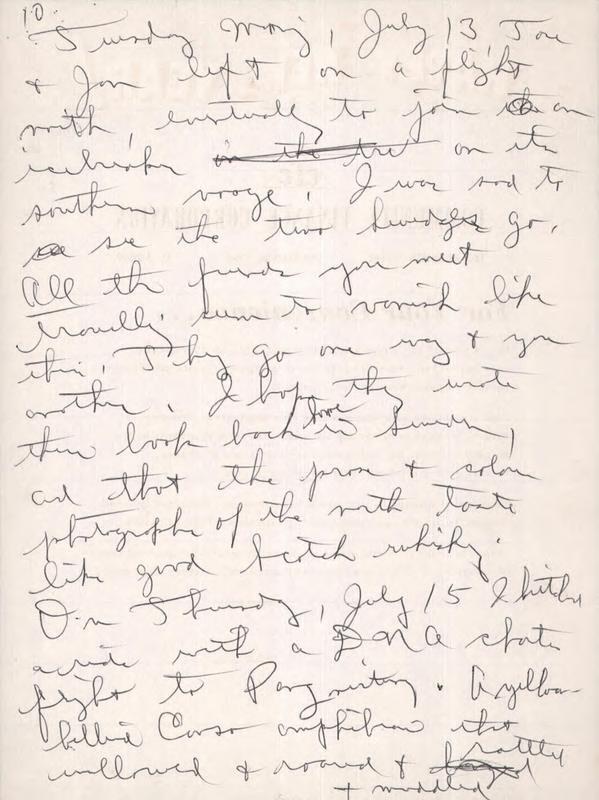 10.
Tuesday morning, July 13 Tore
& Jan left on a flight
north, eventually to join an
icebreaker on its
southern voyage. I was sad to
see the two Swedes go.
All the friends you meet
travelling seem to vanish like
this. They go one way & you
another. I hope they write
their book back home in Sweden,
and that the prose & colour
photographs of the north taste
like good Scotch whisky.
On Thursday, July 15 I hitched
a ride with a DNA charter
flight to Pangnirtung. A yellow-
bellied Canso amphibian that
wallowed & roared & rattled
+ waddled